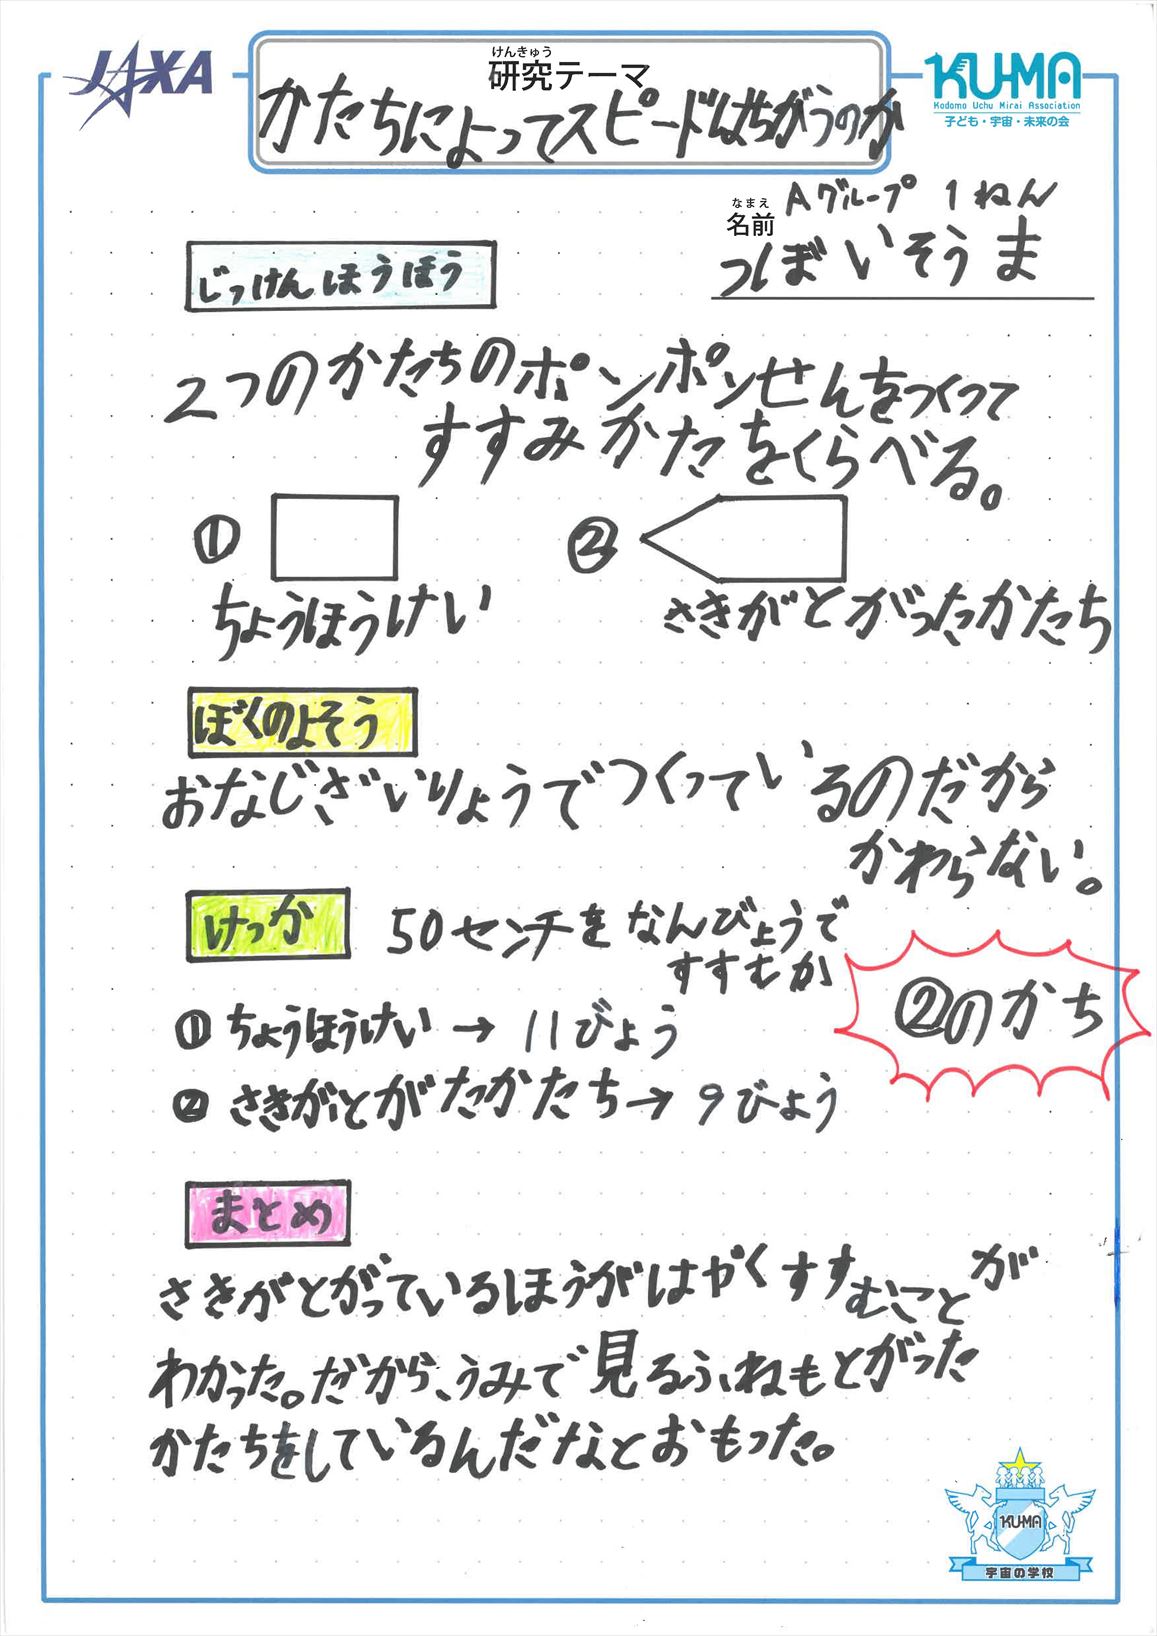 JAXA
けんきゅう
研究テーマ
かたちによってスピードはちがうのか
KU-MA
Kodomo Uchu Mirai Association
子ども・宇宙・未来の会
Aグループ 1ねん
なまえ
名前
つぼいそうま
じっけんほうほう
2つのかたちのポンポンせんをつくって
すすみかたをくらべる。
①
②
ちょうほうけい
さきがとがったかたち
ぼくのよそう
おなじざいりょうでつくっているのだから
かわらない。
けっか
50センチをなんびょうで
すすむか
①ちょうほうけい→11びょう
②さきがとがたかたち→9びょう
②のかち
まとめ
さきがとがっているほうがはやくすすむことが
わかった。だから、うみで見るふねもとがった
かたちをしているんだなとおもった。
KU-MA
宇宙の学校